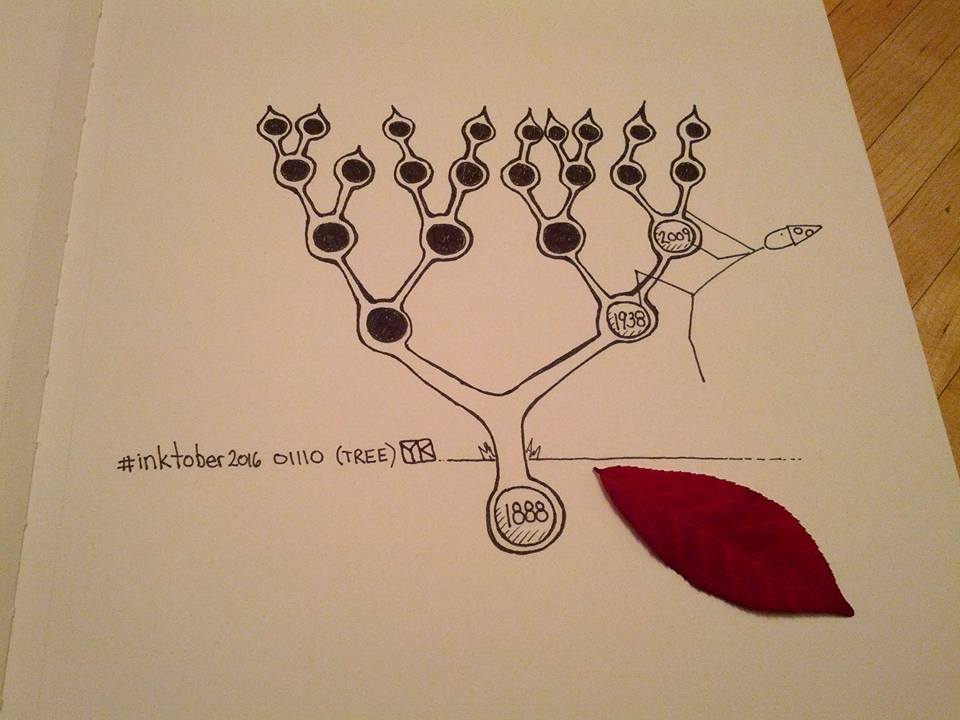 2009
1938
#inktober2016 01110 (TREE) YK
1888